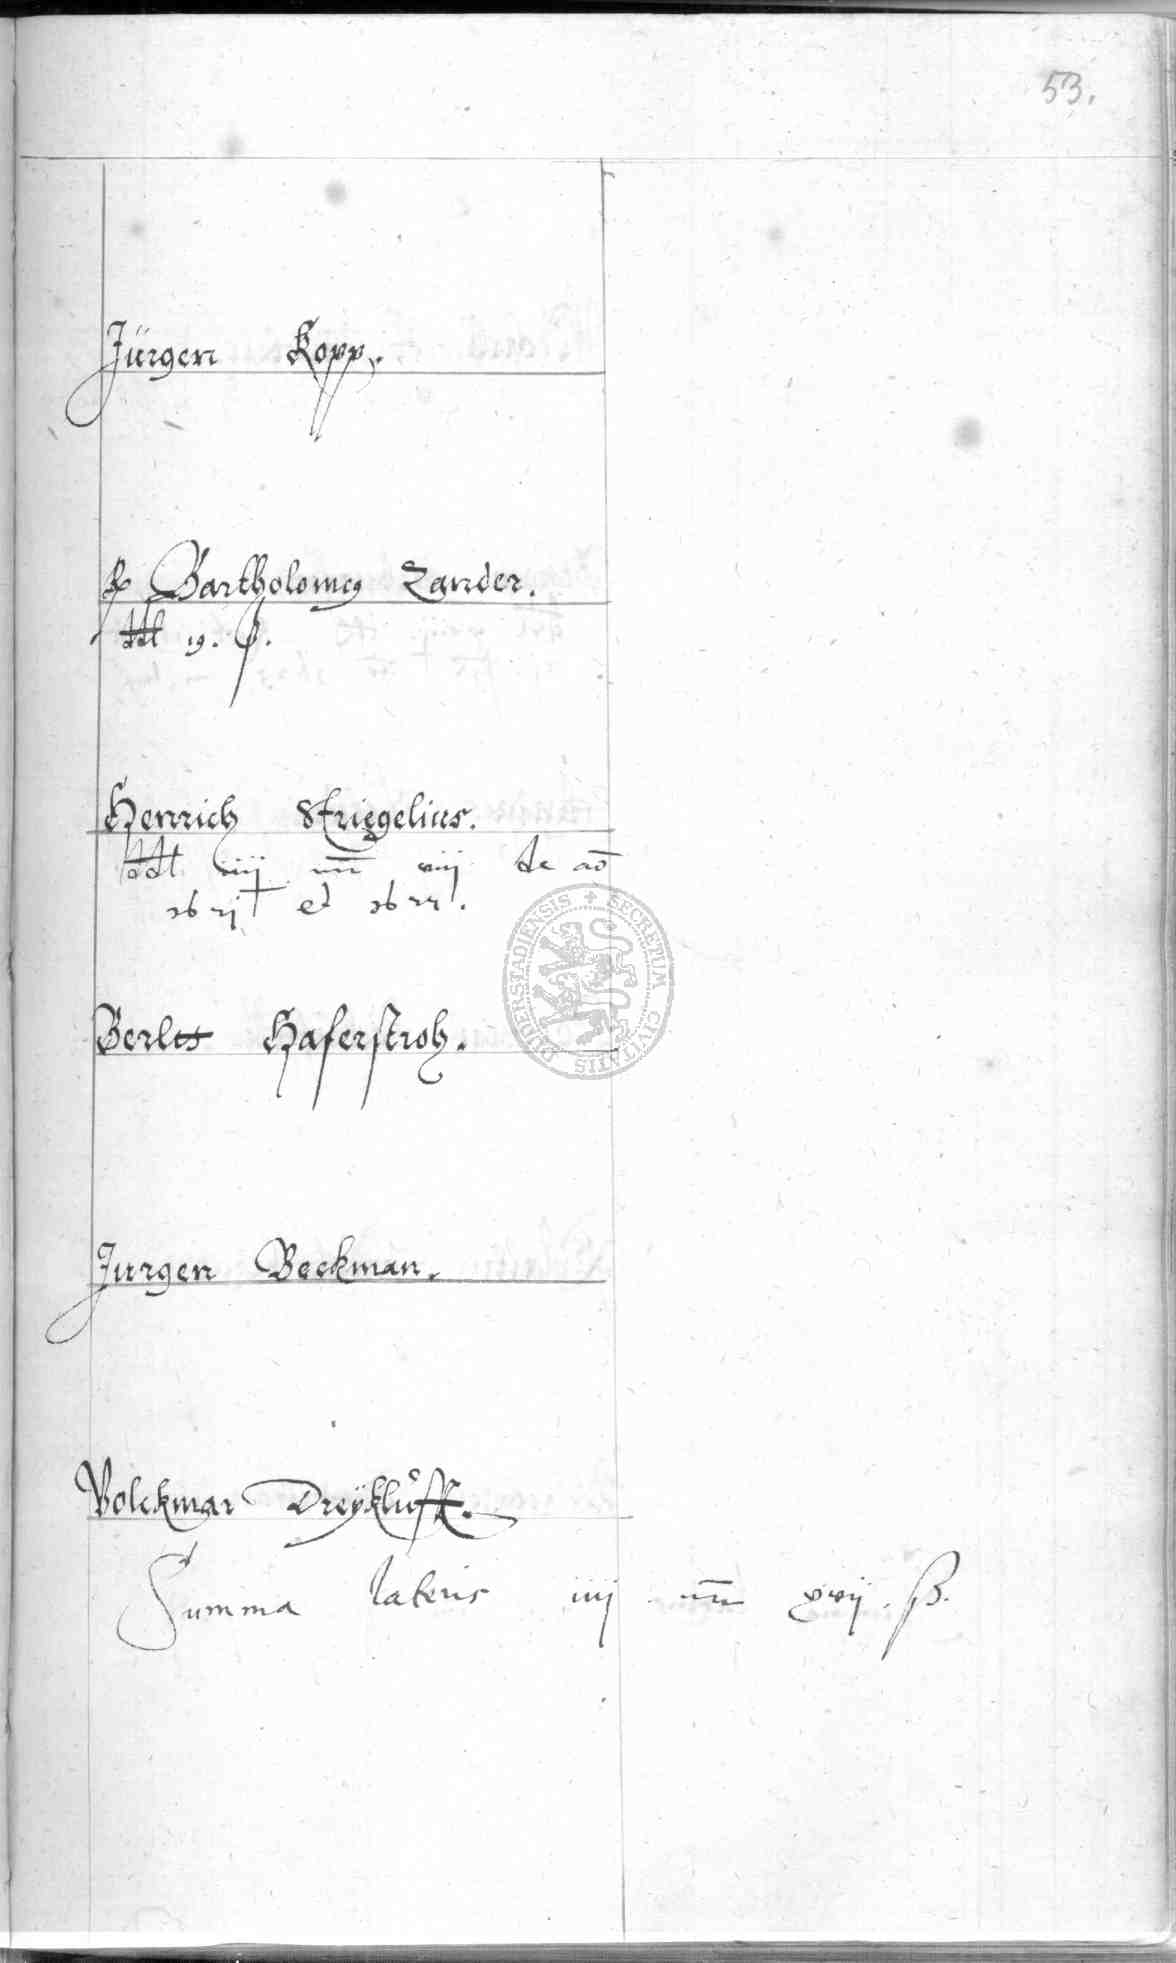 53.
Jürgen Kopp.
Bartholomeg Zander.
ddt 19. ß.
Henrich Striegelius.
ddt iiij viij de ao
162j et 1622.
Berltt Haferstroh.
Jurgen Beckman.
Volckmar Dreÿklufft.
Summa lateris iiij xvij. ß.
SECRETUM CIVITATIS DUDERSTADIENSIS